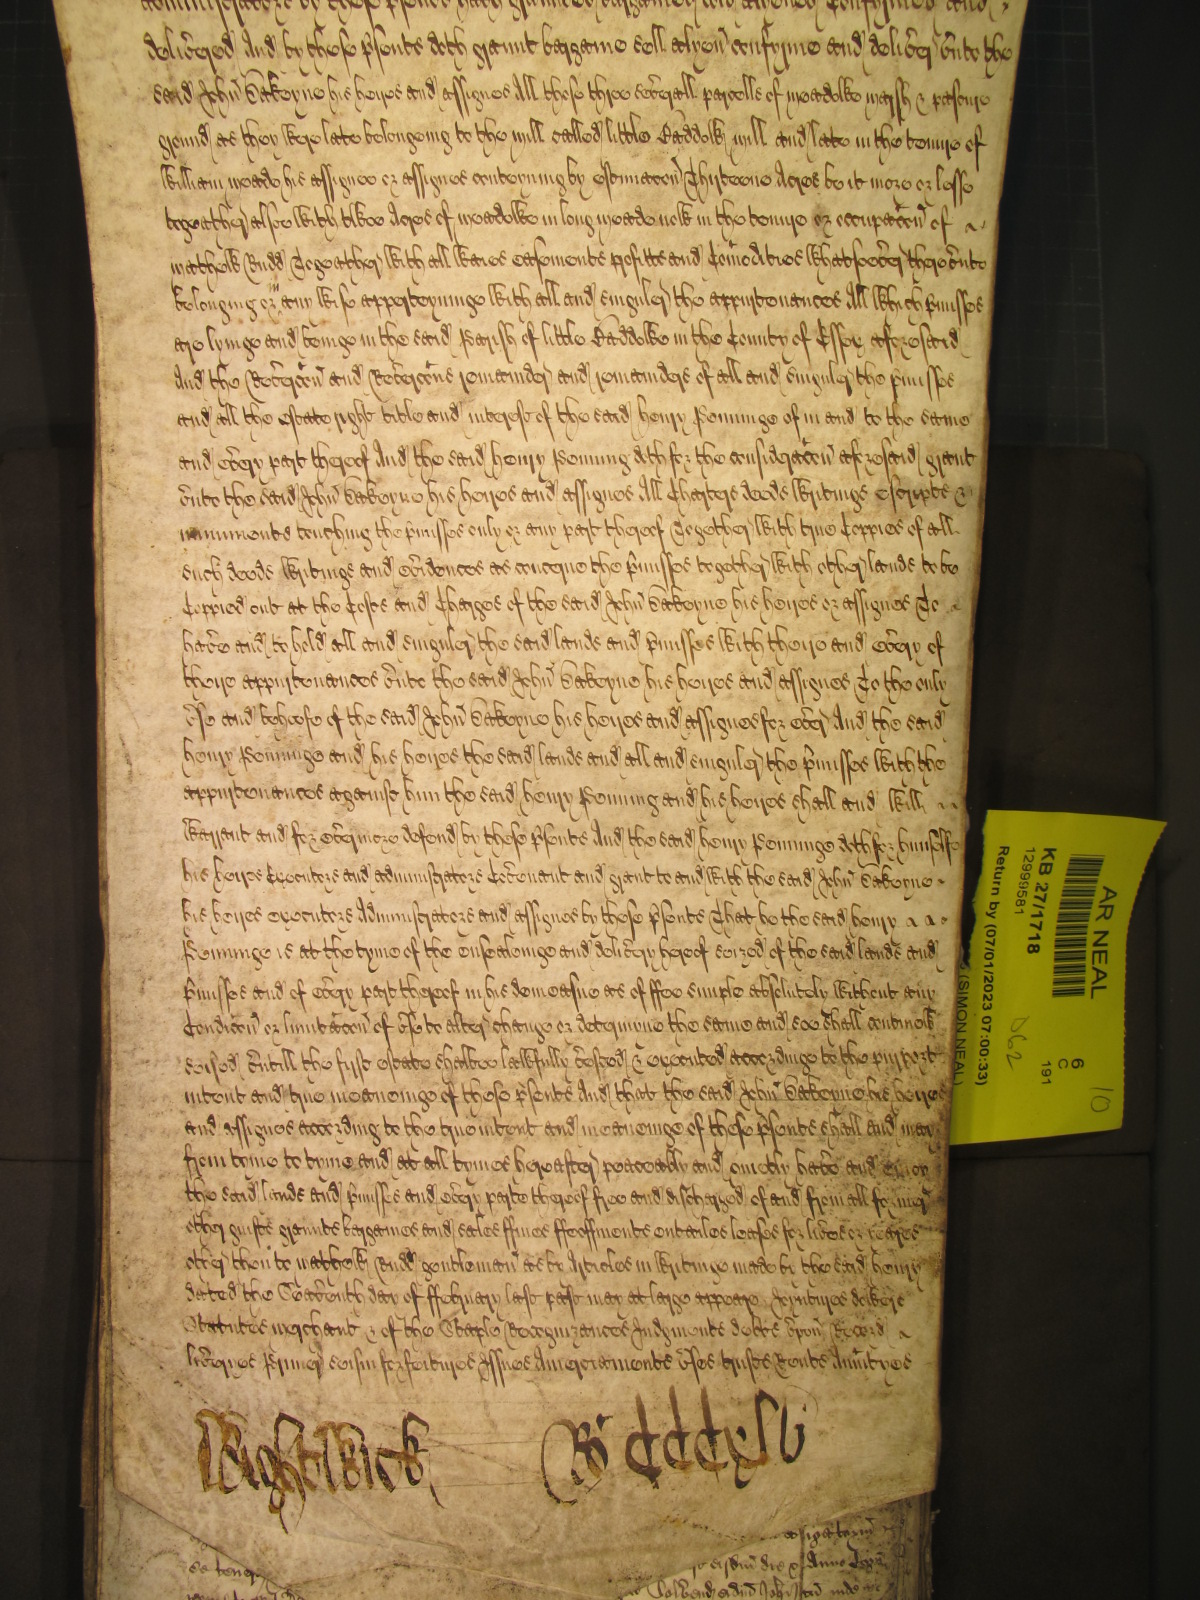 delivered And by these p̃sents doth graunt bargaine sell alyen confyrme and deliver unto the
said John his heires and assignes All those three severall parcells of meadowe marsh & pasture
ground as they were late belonginge to the mill called little Baddow mill and late in the tenure of
William Meade his assignee or assignes conteyning by estimacon Thirteene Acres be it more or lesse
togeather also with twoo Acres of meadowe in long meade in the tenure or occupacon of
Mathew Rudd Togeather with all waies easements profitts and Comodities whatsoever thereunto
belonging or any wise apperteyninge with all and singuler the appurtenances All which p̃misses
are lyinge and beinge in the said Parish of little Baddowe in the County of Essex aforesaid
And the Revercon and Revercons remainder and remainders of all and singuler the p̃misses
and all the estate right title and interest of the said henry of in and to the same
and every part thereof And the said henry doth for the consideracon aforesaid graunt
unto the said John his heires and assignes All Charters deeds writings escripts &
muniments touching the p̃misses only or any part thereof Together with true Coppies of all
such deeds writings and evidences as concerne the p̃misses together with other lands to be
Coppied out at the Costs and Charges of the said John his heires or assignes To
have and to hold all and singuler the said lands and p̃misses with theire and every of
theire appurtenances unto the said John his heires and assignes To the only
use and behoofe of the said John his heires and assignes for ever And the said
henry and his heires the said lands and all and singuler the p̃misses with the
appurtenances against him the said henry and his heires shall and will
warrant and for evermore defend by these p̃sents And the said henry doth for himselfe
his heires Executors and administrators Covenant and graunt to and with the said John
his heires executors Administrators and assignes by these p̃sents That he the said henry
is at the tyme of the ensealinge and delivery hereof seized of the said lands and
p̃misses and of every part thereof in his demeasne as of ffee simple absolutely without any
Condicon or limitacon of use to alter change or determyne the same and soe shall continew
seised untill the first estate shalbee lawfully vested & executed accordinge to the purport
intent and true meaneinge of these p̃sents And that the said John his heires
and assignes according to the true intent and meaneinge of these p̃sents shall and may
from tyme to tyme and at all tymes hereafter peaceably and quietly have and enjoy
the said lands and p̃misses and every parte thereof free and discharged of and from all former
other guifts graunts bargaines and sales ffines ffeoffments entailes leases for lives or yeares
other then to Mathew Rudd gentleman as by Articles in writinge made by the said henry
dated the Seaventh day of ffebruary last past may at large appeare Joyntures dowers
Statutes merchant & of the Staple Recognizances Judgments debts upon Record
liveries Primer seisin forfeitures Issues Amerciaments Uses trusts Rents Anuityes
Wightwick
AR NEAL
6
C
191
10
KB 27/1718
12999581
D62
Return by (07/01/2023 07:00:33)
(SIMON NEAL)